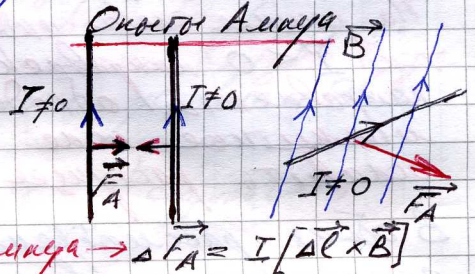 Опыты Ампера
I≠0
I≠0
B
F_A
I≠0
F_A
мпера → ΔF_A = I[Δl×B]